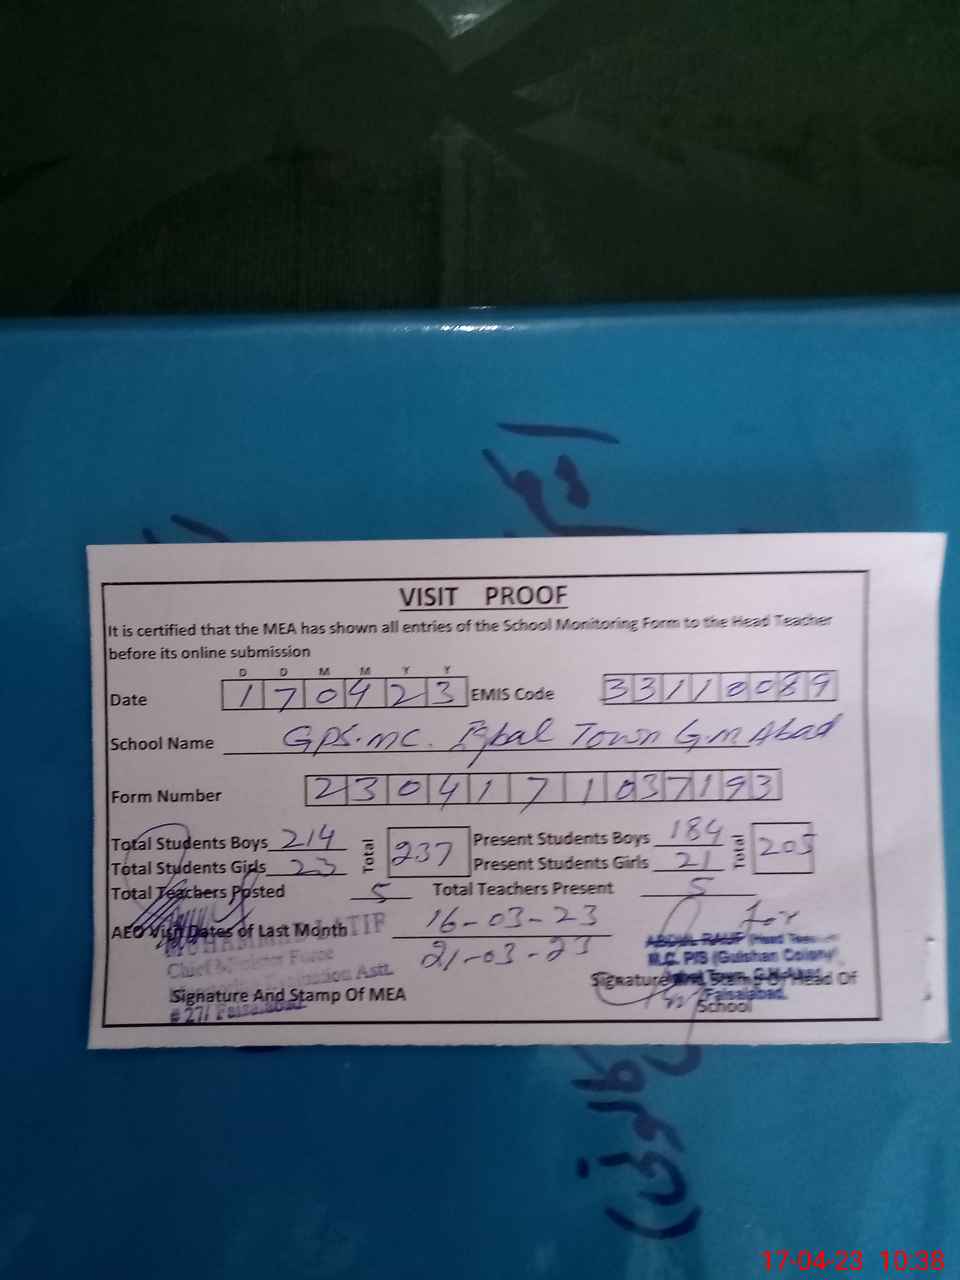 VISIT PROOF
It is certified that the MEA has shown all entries of the School Monitoring Form to the Head Teacher
before its online submission
D D M M Y Y
Date 170423 EMIS Code 33110089
School Name GPS.MC. Iqbal Town G.M Abad
Form Number 2304171037193
Total Students Boys 214 Total 237 Present Students Boys 184 Total 205
Total Students Girls 23 Present Students Girls 21
Total Teachers Posted 5 Total Teachers Present 5
AEO Visit Dates of Last Month 16-03-23
21-03-23
for
MUHAMMAD LATIF
Chief Minister Force
Astt.
# 27/ Faisalabad
Signature And Stamp Of MEA
ABDUL RAUF (Head Teacher)
M.C. P/S (Gulshan Colony)
Iqbal Town, G.M. Abad
Faisalabad.
Signature And Stamp Of Head Of
School
17-04-23 10:38